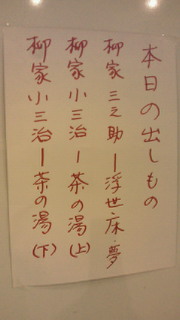 本日の出しもの
柳家 三之助ー浮世床・夢
柳家 小三治ー茶の湯(上)
柳家 小三治ー茶の湯(下)